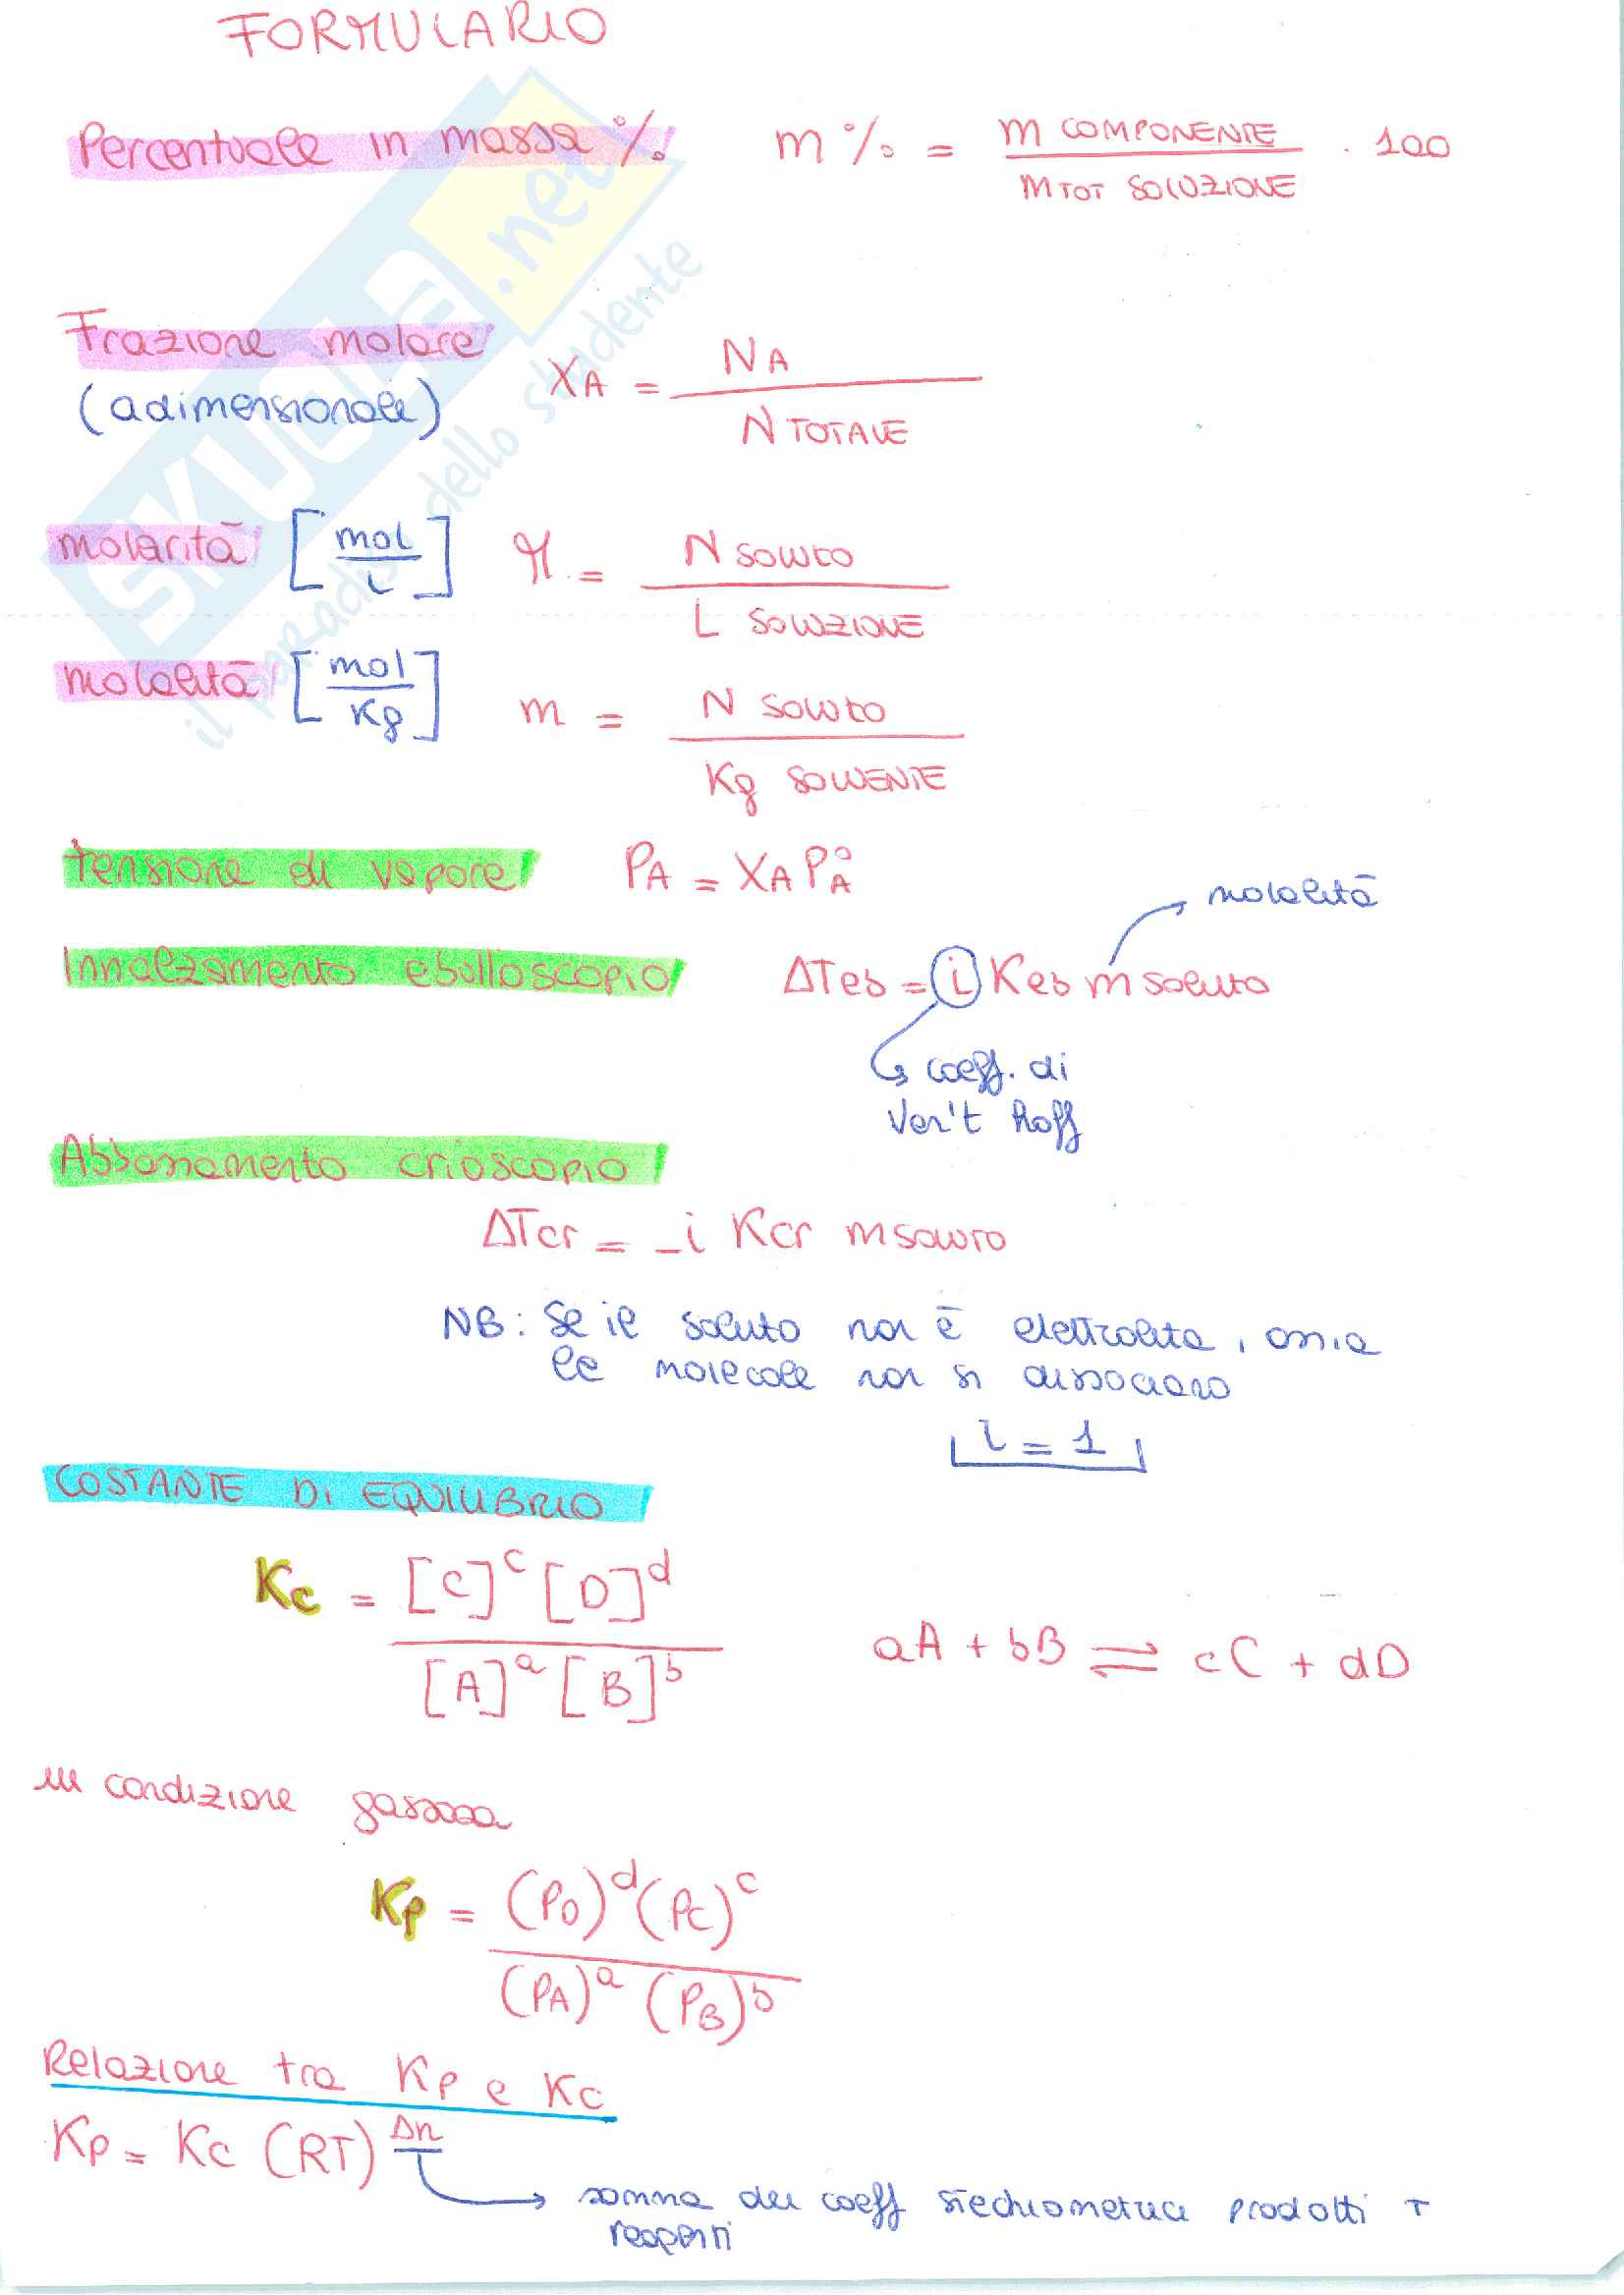 FORMULARIO
Percentuale in massa % m % = m COMPONENTE / m TOT SOLUZIONE · 100
Frazione molare
(adimensionale) XA = NA / N TOTALE
molarità [mol / L] M = N SOLUTO / L SOLUZIONE
molalità [mol / Kg] m = N SOLUTO / Kg SOLVENTE
tensione di vapore PA = XA P°A
molalità
Innalzamento ebulloscopio ΔTeb = i Keb m soluto
coeff. di
Van't Hoff
Abbassamento crioscopio
ΔTcr = -i Kcr m SOLUTO
NB: Se il soluto non è elettrolita, ossia
le molecole non si dissociano
i = 1
COSTANTE DI EQUILIBRIO
Kc = [C]^c [D]^d / [A]^a [B]^b aA + bB ⇌ cC + dD
in condizione gassosa
Kp = (PD)^d (PC)^c / (PA)^a (PB)^b
Relazione tra Kp e Kc
Kp = Kc (RT)^Δn
somma dei coeff stechiometrici prodotti
reagenti
SKUOLA.net
il paradiso dello studente